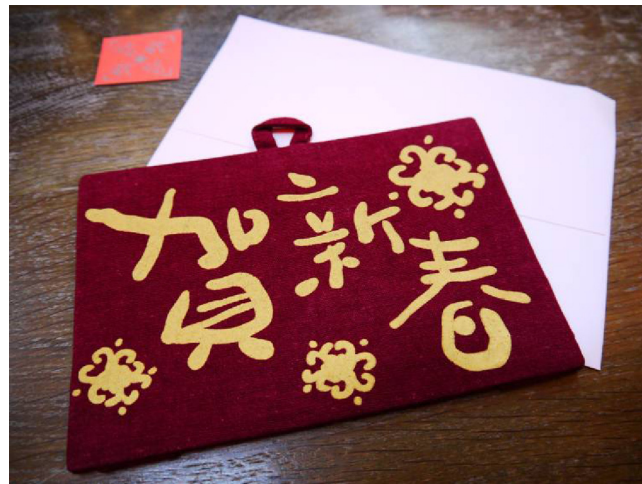 賀新春